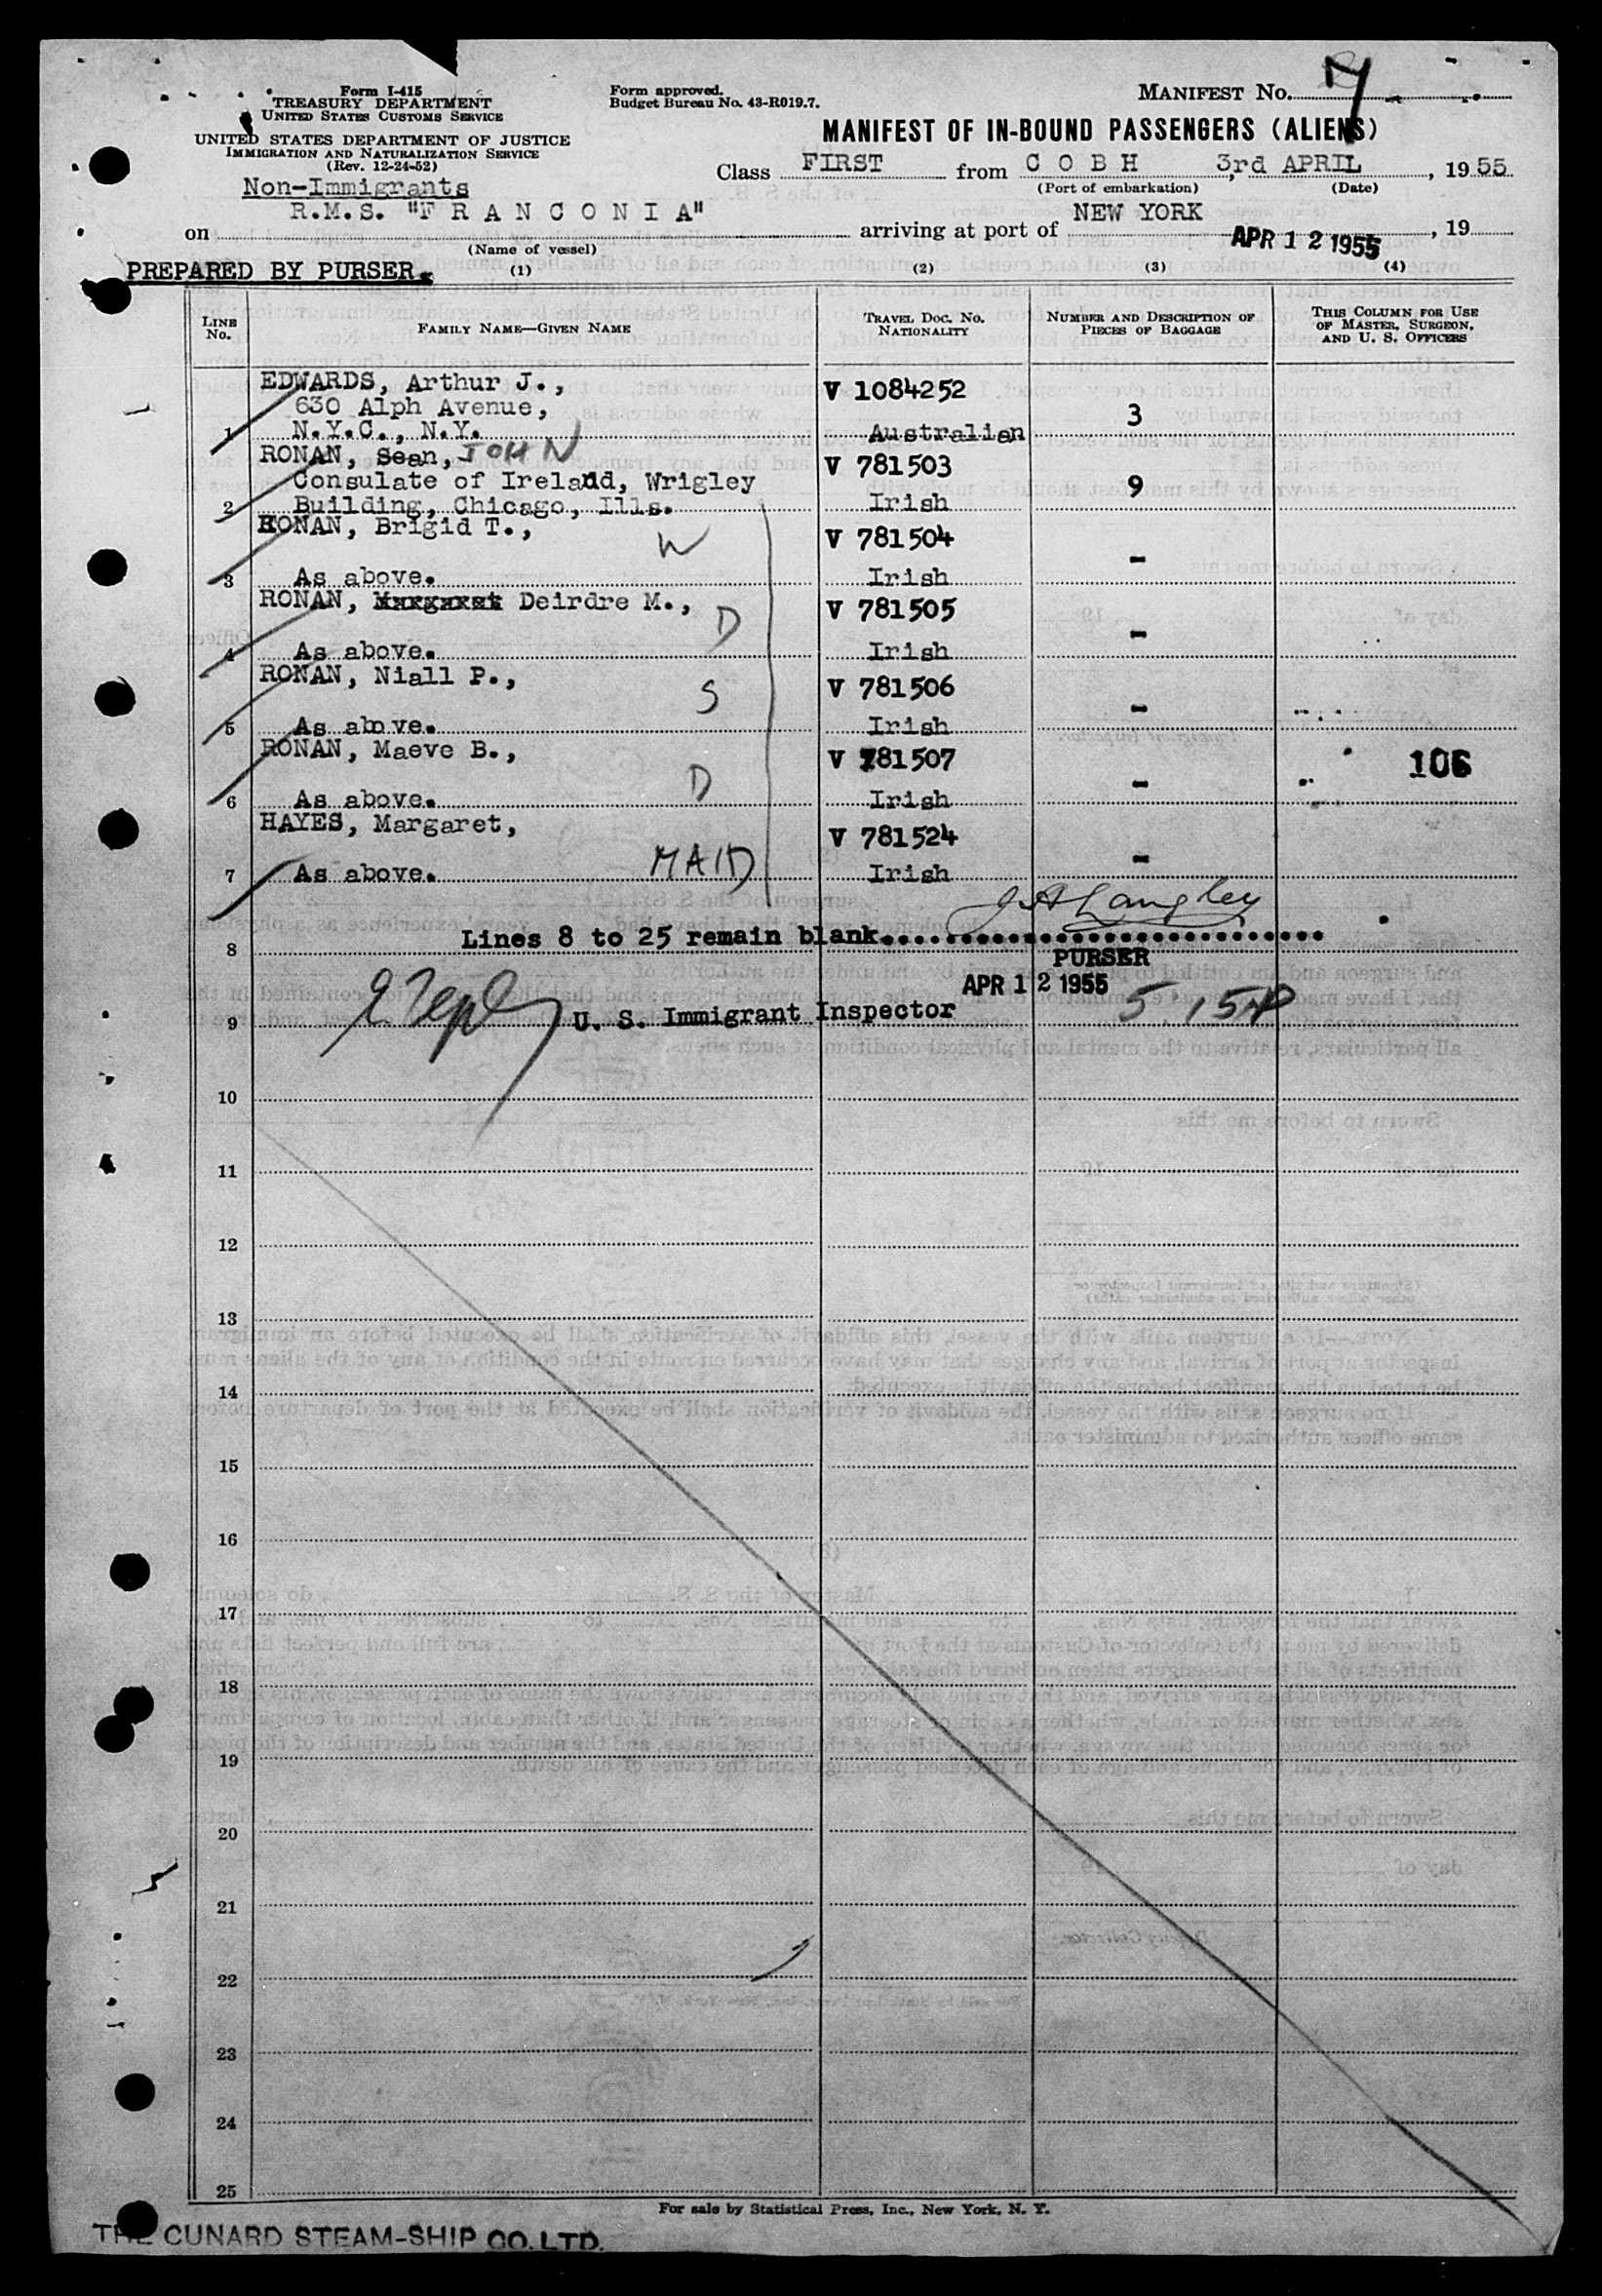 Form I-415
TREASURY DEPARTMENT
UNITED STATES CUSTOMS SERVICE
UNITED STATES DEPARTMENT OF JUSTICE
IMMIGRATION AND NATURALIZATION SERVICE
(Rev. 12-24-52)
Form approved.
Budget Bureau No. 43-R019.7.
MANIFEST No. 7
MANIFEST OF IN-BOUND PASSENGERS (ALIENS)
Class FIRST from C O B H, 3rd APRIL, 1955
(Port of embarkation) (Date)
Non-Immigrants
on R.M.S. "F R A N C O N I A" arriving at port of NEW YORK APR 12 1955, 19
(Name of vessel)
PREPARED BY PURSER.
(1) (2) (3) (4)
LINE No. FAMILY NAME—GIVEN NAME TRAVEL DOC. No. NATIONALITY NUMBER AND DESCRIPTION OF PIECES OF BAGGAGE THIS COLUMN FOR USE OF MASTER, SURGEON, AND U. S. OFFICERS
EDWARDS, Arthur J., V 1084252
630 Alph Avenue, 3
1 N.Y.C., N.Y. Australian
RONAN, Sean, JOHN V 781503
Consulate of Ireland, Wrigley 9
2 Building, Chicago, Ills. Irish
RONAN, Brigid T., W V 781504 -
3 As above. Irish
RONAN, Margaret Deirdre M., D V 781505 -
4 As above. Irish
RONAN, Niall P., S V 781506 -
5 As above. Irish
RONAN, Maeve B., V 781507 106
6 As above. D Irish -
HAYES, Margaret, V 781524
7 As above. MAID Irish -
J A Langley
8 Lines 8 to 25 remain blank.
PURSER
APR 12 1955
9 U. S. Immigrant Inspector 5 15P
10
11
12
13
14
15
16
17
18
19
20
21
22
23
24
25
For sale by Statistical Press, Inc., New York, N. Y.
THE CUNARD STEAM-SHIP CO. LTD.